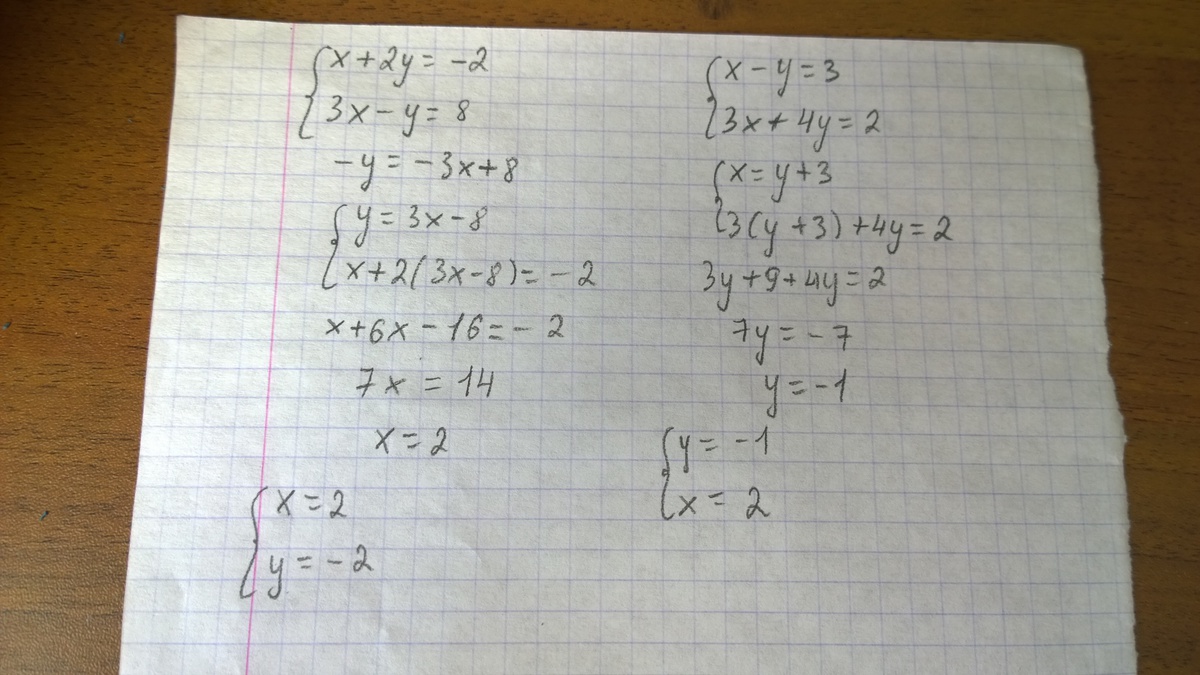 x+2y=-2
3x-y=8
-y=-3x+8
y=3x-8
x+2(3x-8)=-2
x+6x-16=-2
7x=14
x=2
x=2
y=-2
x-y=3
3x+4y=2
x=y+3
3(y+3)+4y=2
3y+9+4y=2
7y=-7
y=-1
y=-1
x=2